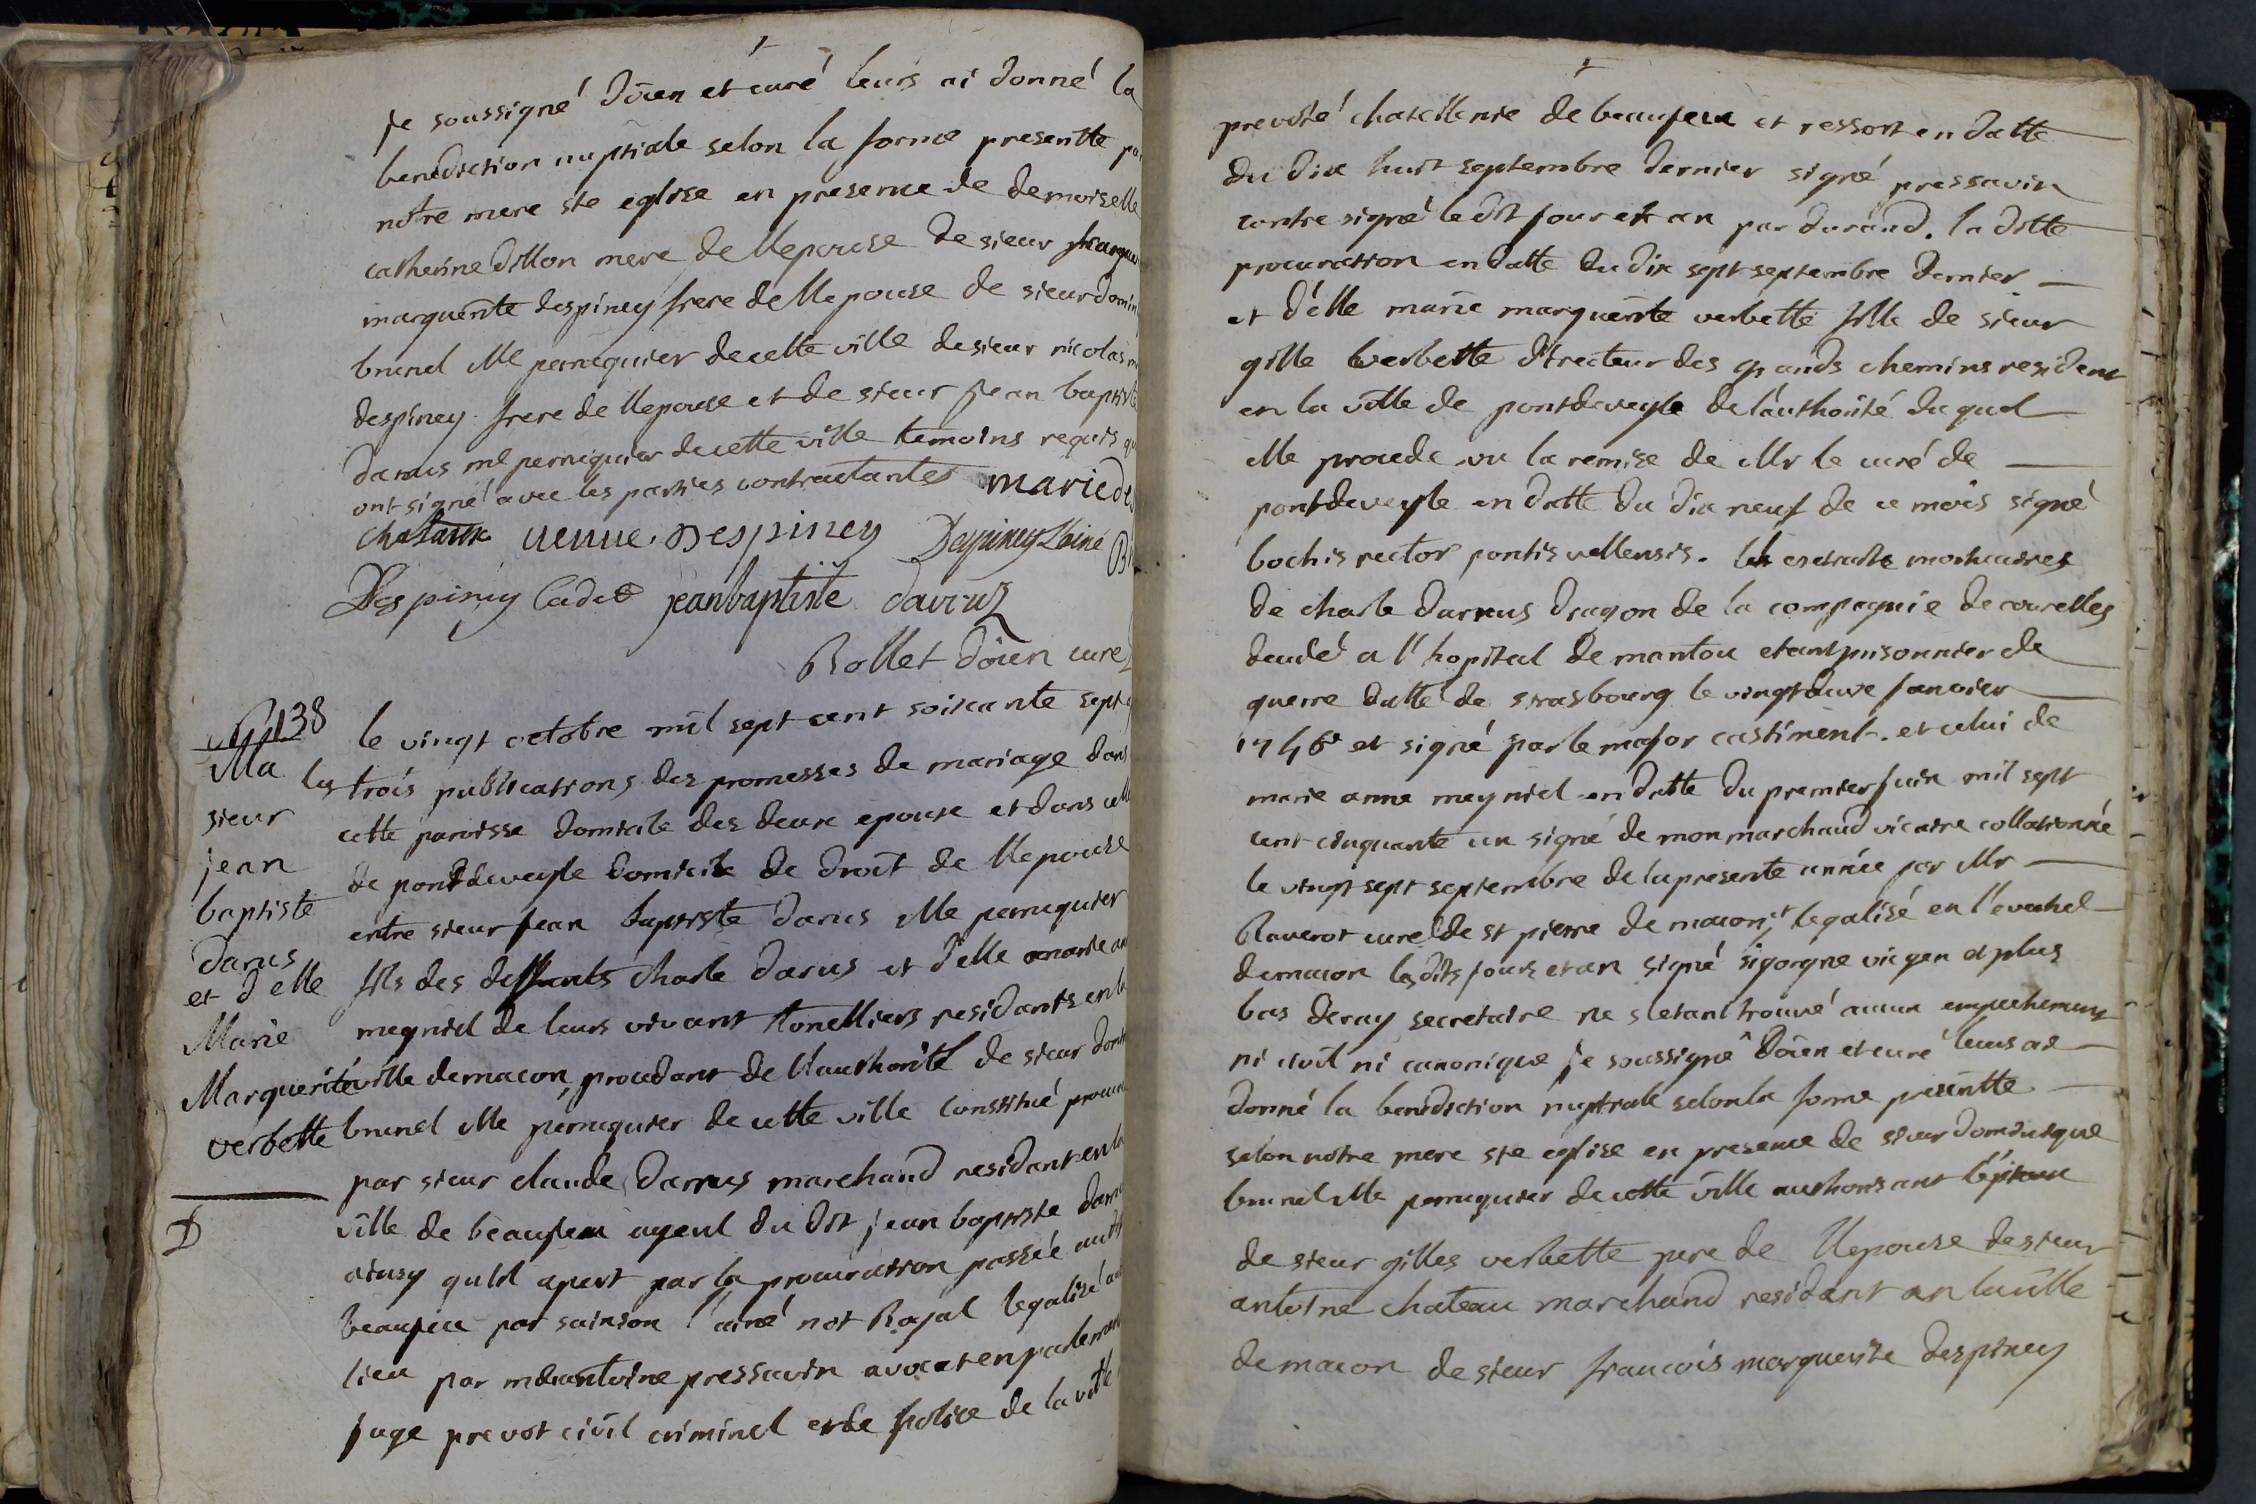 je soussigné doïen et curé leurs ai donné la
benediction nuptiale selon la forme presentte par
nôtre mere ste eglise en presence de demoiselle
catherine dillon mere de llepouse de sieur
marguerite despiney frere de llepouse de sieur domin
brunel Me perruquier de cette ville de sieur nicolas
despiney frere de llepouse et de sieur jean baptiste
darius me perruquier de cette ville temoins requis qu
ont signé avec les parties contractantes marie des
chataux veuve Despiney Despiney Lainé
Despiney Cadet jean baptiste daviruz
Rollet doïen curé
138
Ma
sieur
jean
baptiste
darus
et d elle
Marie
Marguerite
verbette
D
le vingt octobre mil sept cent soixante sept
les trois publications des promesses de mariage dans
cette paroisse domicile des deux epoux et dans celle
de pontdeveyle domicile de droit de llepouse
entre sieur jean baptiste darus Me perruquier
fils des deffunts charle darus et d'elle marie an
meyniel de leurs vivant tonelliers residants en la
ville de macon, procedant de l'authorité de sieur dom
brunel Me perruquier de cette ville constitué procu
par sieur claude Darrus marchand residant en la
ville de beaujeu ayeul du dit jean baptiste darru
ainsy qu'il apert par la procuration passée audit
beaujeu par sainson l'ainé not Royal legalisé au
lieu par me antoine pressavin avocat en parlement
juge prevot civil criminel et de police de la ville
prevôté chatellenie de beaujeu et ressort en datte
du dix huit septembre dernier signé pressavin
contre signé le dit jour et an par durand. la ditte
procuration en datte du dix sept septembre dernier
et d'elle marie marguerite verbette fille de sieur
gille verbette directeur des grands chemins resident
en la ville de pontdeveyle de l'authorité duquel
elle procede vu la remise de Mr le curé de
pontdeveyle en datte du dix neuf de ce mois signé
bochis rector pontis vellensis. les extraits mortuaires
de charle darrus dragon de la compagnie de courelles
decedé a l'hopital de mantou etant prisonnier de
guerre datté de strasbourg le vingt deux janvier
1746 et signé par le major castiment. et celui de
marie anne meyniel en datte du premier juin mil sept
cent cinquante un signé de mon marchand vicaire collationné
le vingt sept septembre de la presente année par Mr
Raverot curé de st pierre de macon, et legalisé en l'eveché
de macon les dits jours et an signé sigorgne vic gen et plus
bas deray secretaire ne s'etant trouvé aucun empechement
ni civil ni canonique je soussigné doïen et curé leurs ai
donné la benediction nuptiale selon la forme presentte
selon notre mere ste eglise en presence de sieur dominique
brunel Me perruquier de cette ville authorisant l'époux
de sieur gilles verbette pere de llepouse de sieur
antoine chateau marchand residant en la ville
de macon de sieur francois marguerite despiney